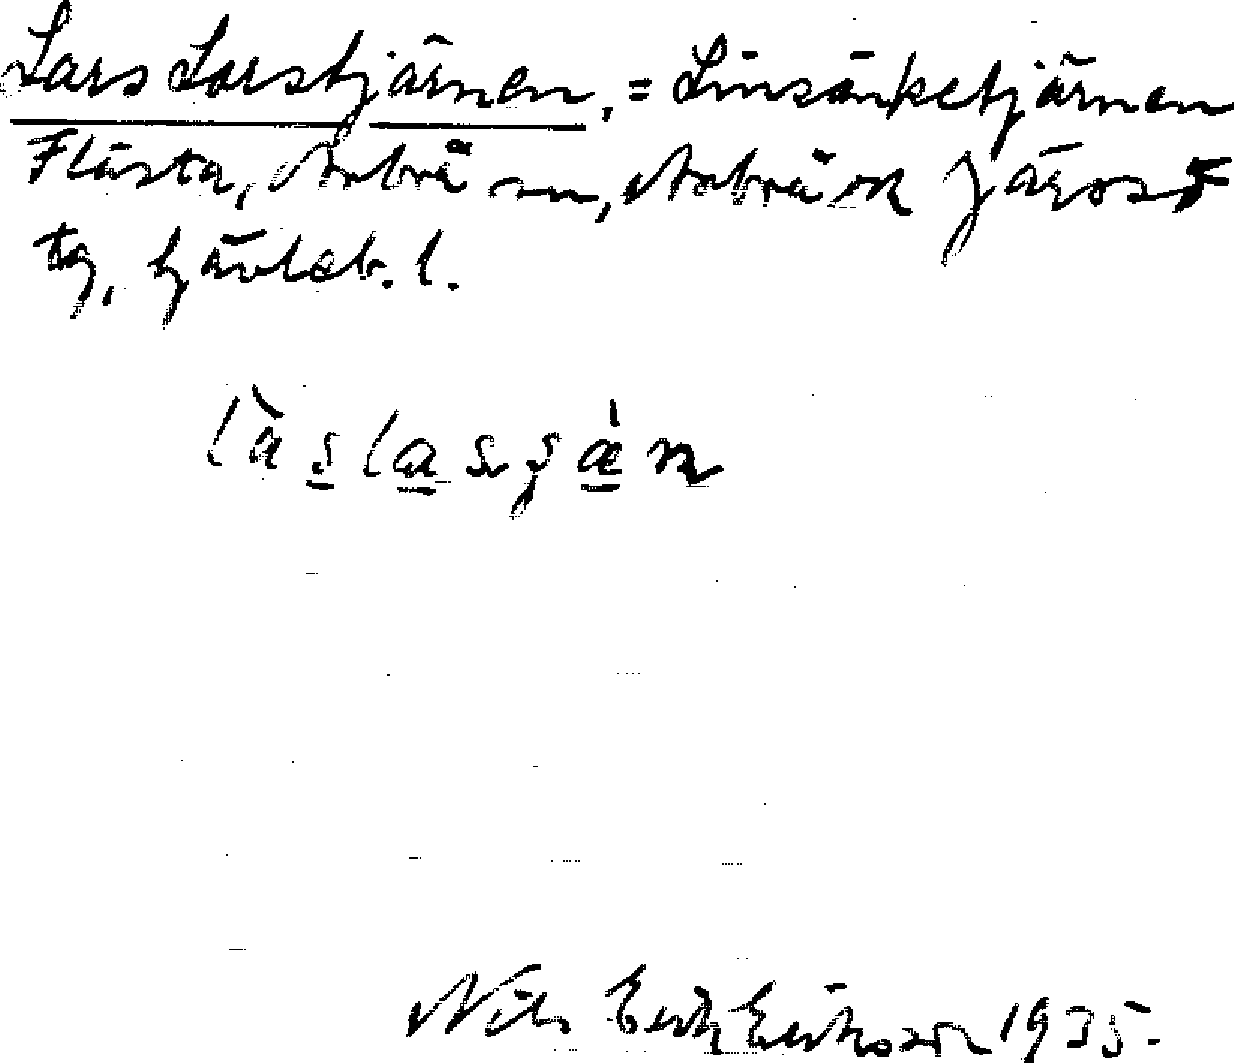 Lars Larstjärnen, = Linsänketjärnen
Flästa, Arbrå sn, Arbrå ok Järvsö
tg, Gävleb. l.
làslassjǽn
Nils Erik Eriksson 1935.